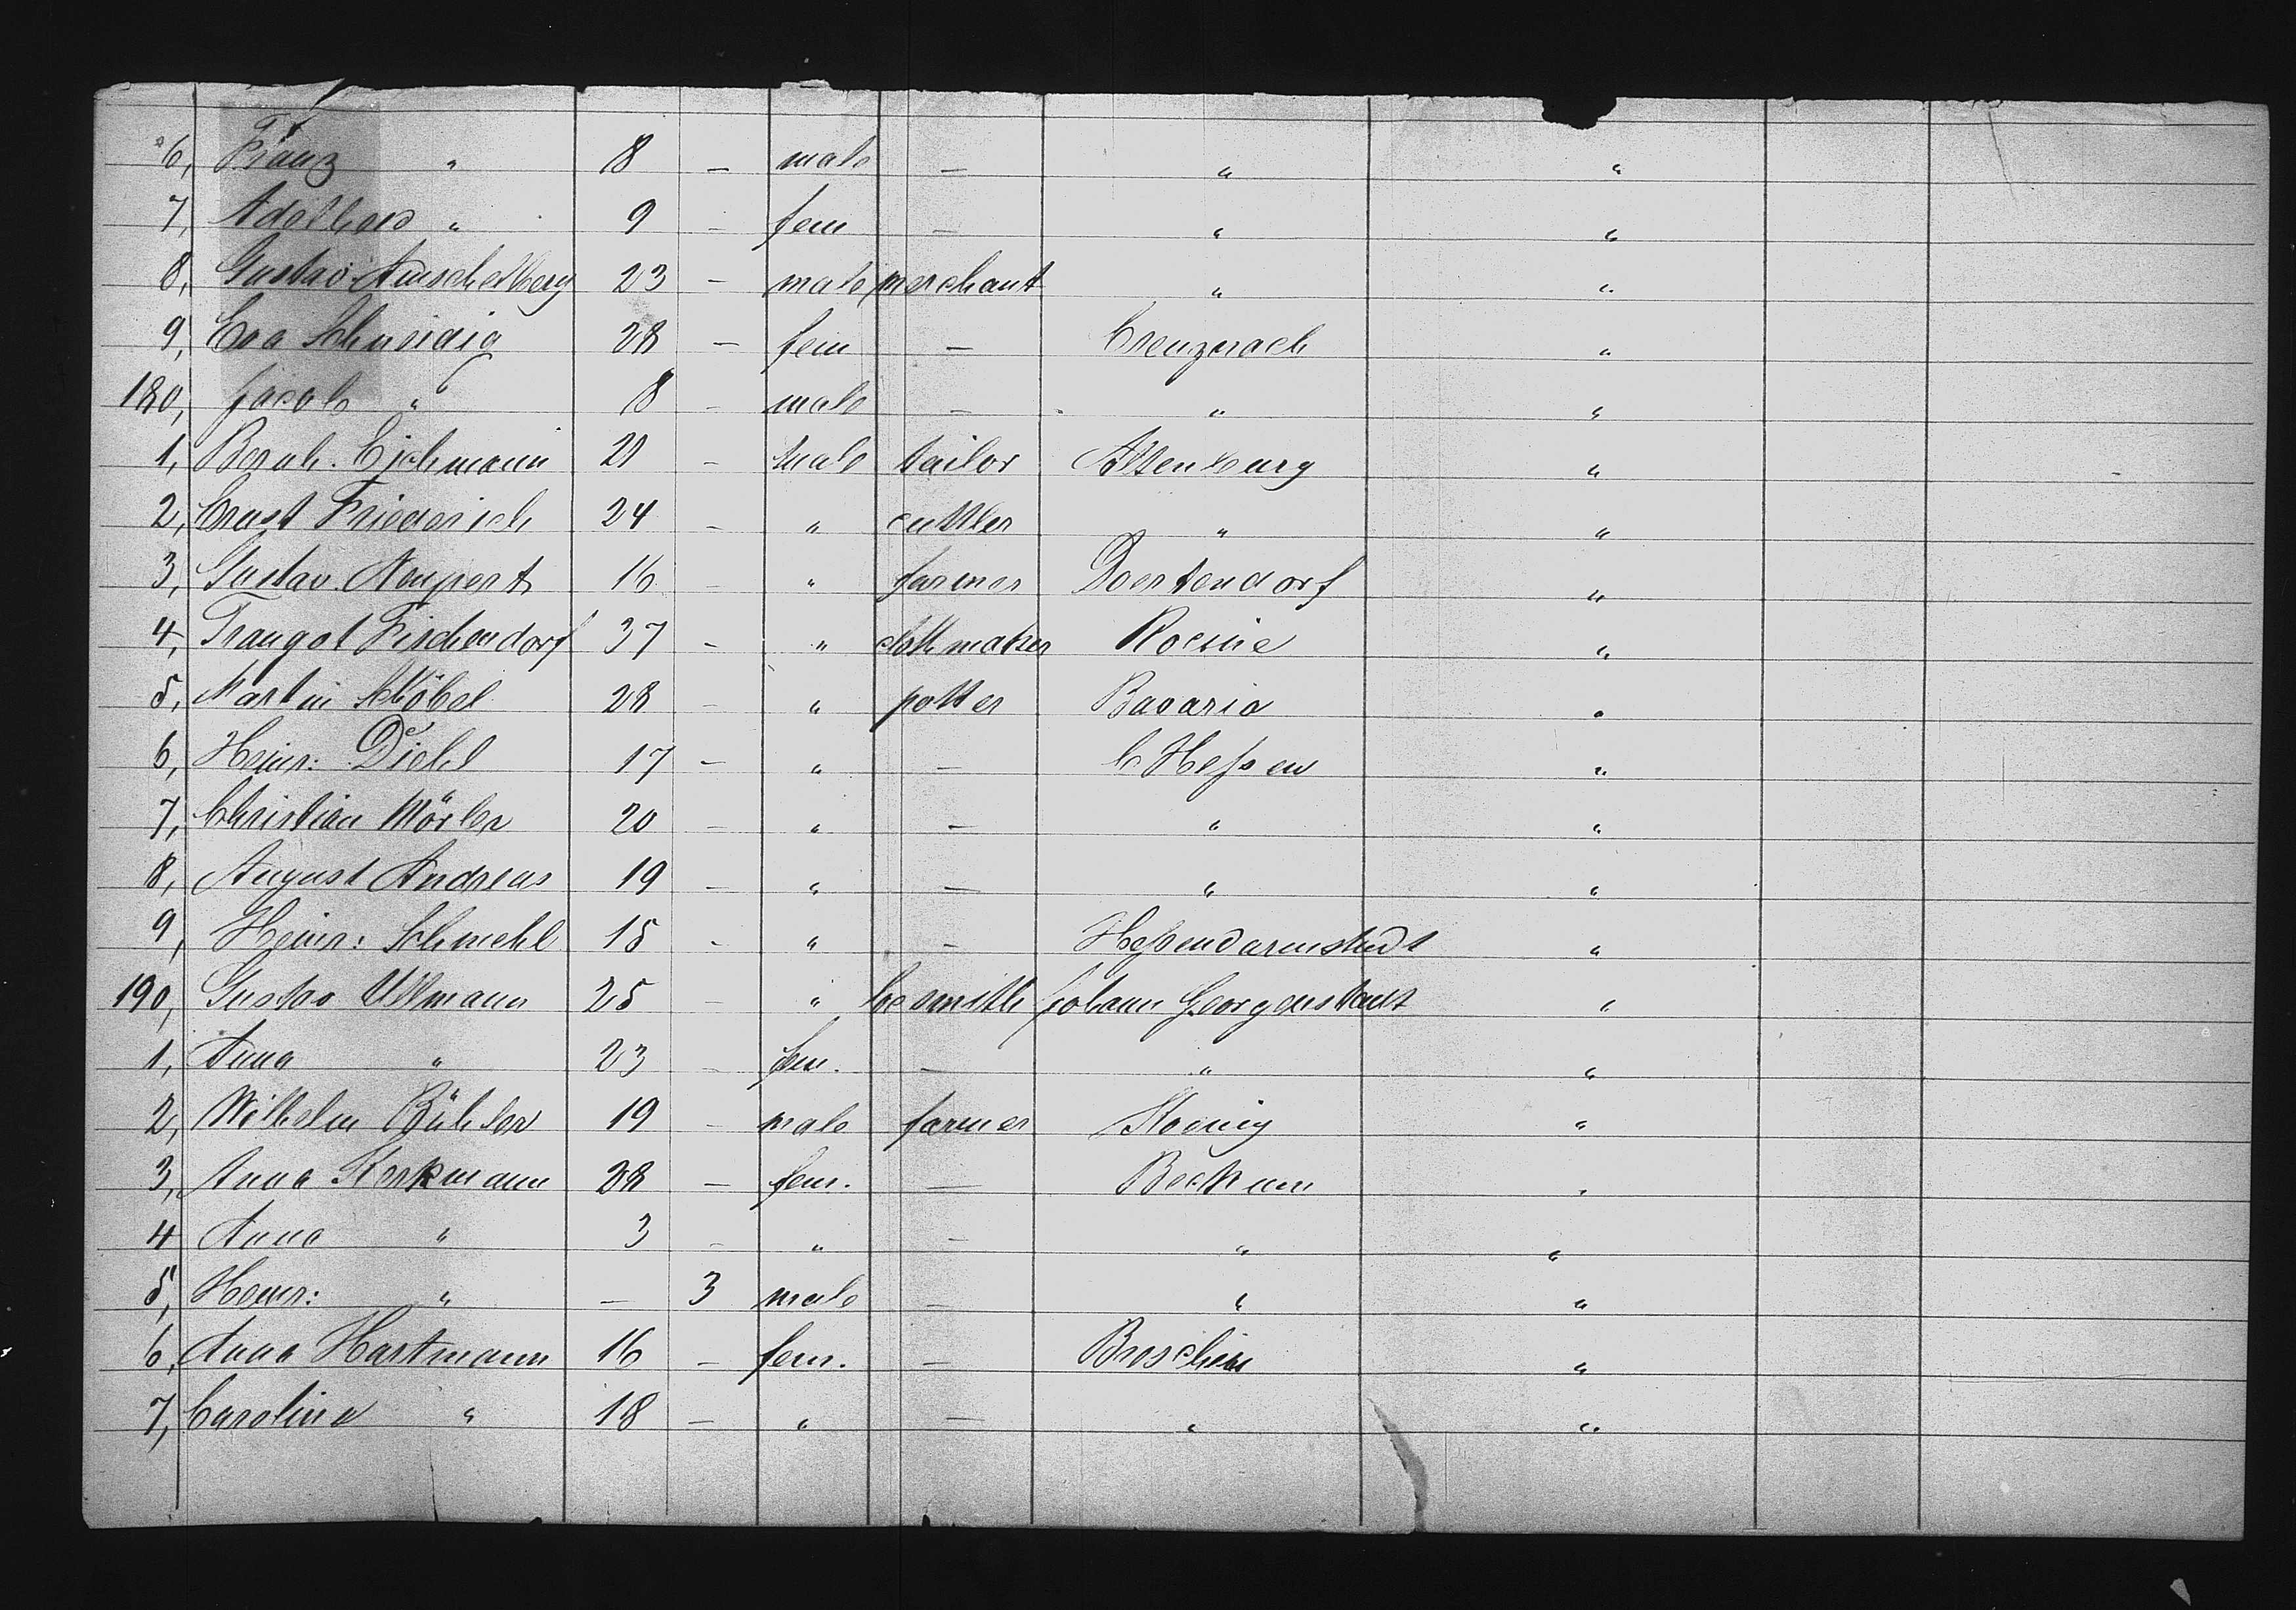 6, Franz " 8 - male - " "
7, Adelheid " 9 - fem - " "
8, Gustav Amschelberg 23 - male merchant " "
9, Eva Schneidig 28 - fem - Creuznach "
180, Jacob " 8 - male - " "
1, Bernh. Eichmann 21 - male tailor Altenburg "
2, Ernst Friederich 24 - " cuttler " "
3, Gustav Neupert 16 - " farmer Doertendorf "
4, Traugot Fischendorf 37 - " clothmaker "
5, Martin Stöbel 28 - " potter Bavaria "
6, Heinr: Diehl 17 - " - C Hessen "
7, Christian Mörler 20 - " - " "
8, August Andreas 19 - " - " "
9, Heinr: Schmehl 15 - " - Hessendarmstadt "
190, Gustav Ullmann 25 - " Johann Georgenstadt "
1, Anna " 23 - fem. - " "
2, Wilhelm Bühler 19 - male farmer Koenig "
3, Anna Kerkmann 28 - fem. - Beckum "
4 Anna " 3 - " - " "
5, Heinr: " - 3 male - " "
6, Anna Hartmann 16 - fem. - "
7, Carolina " 18 - " - " "